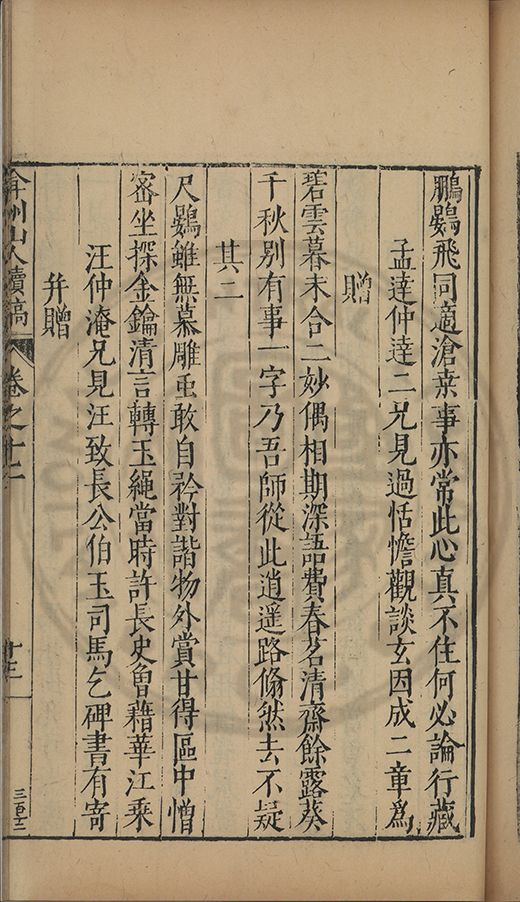 鵬鷃飛同適滄桒事亦常此心真不住何必論行藏
孟達仲逹二兄見過恬憺觀談玄因成二章爲
贈
碧雲暮未合二妙偶相期深語費春茗清齋餘露葵
千秋别有事一字乃吾師從此逍遥路翛然去不疑
其二
尺鷃雖無慕雕䖝敢自矜對諧物外賞甘得區中憎
宻坐探金鑰清言轉玉䋲當時許長史曽藉華江乗
汪仲淹兄見汪致長公伯玉司馬乞碑書有寄
并贈
弇州山人續稿
卷之十二
十三
三百三